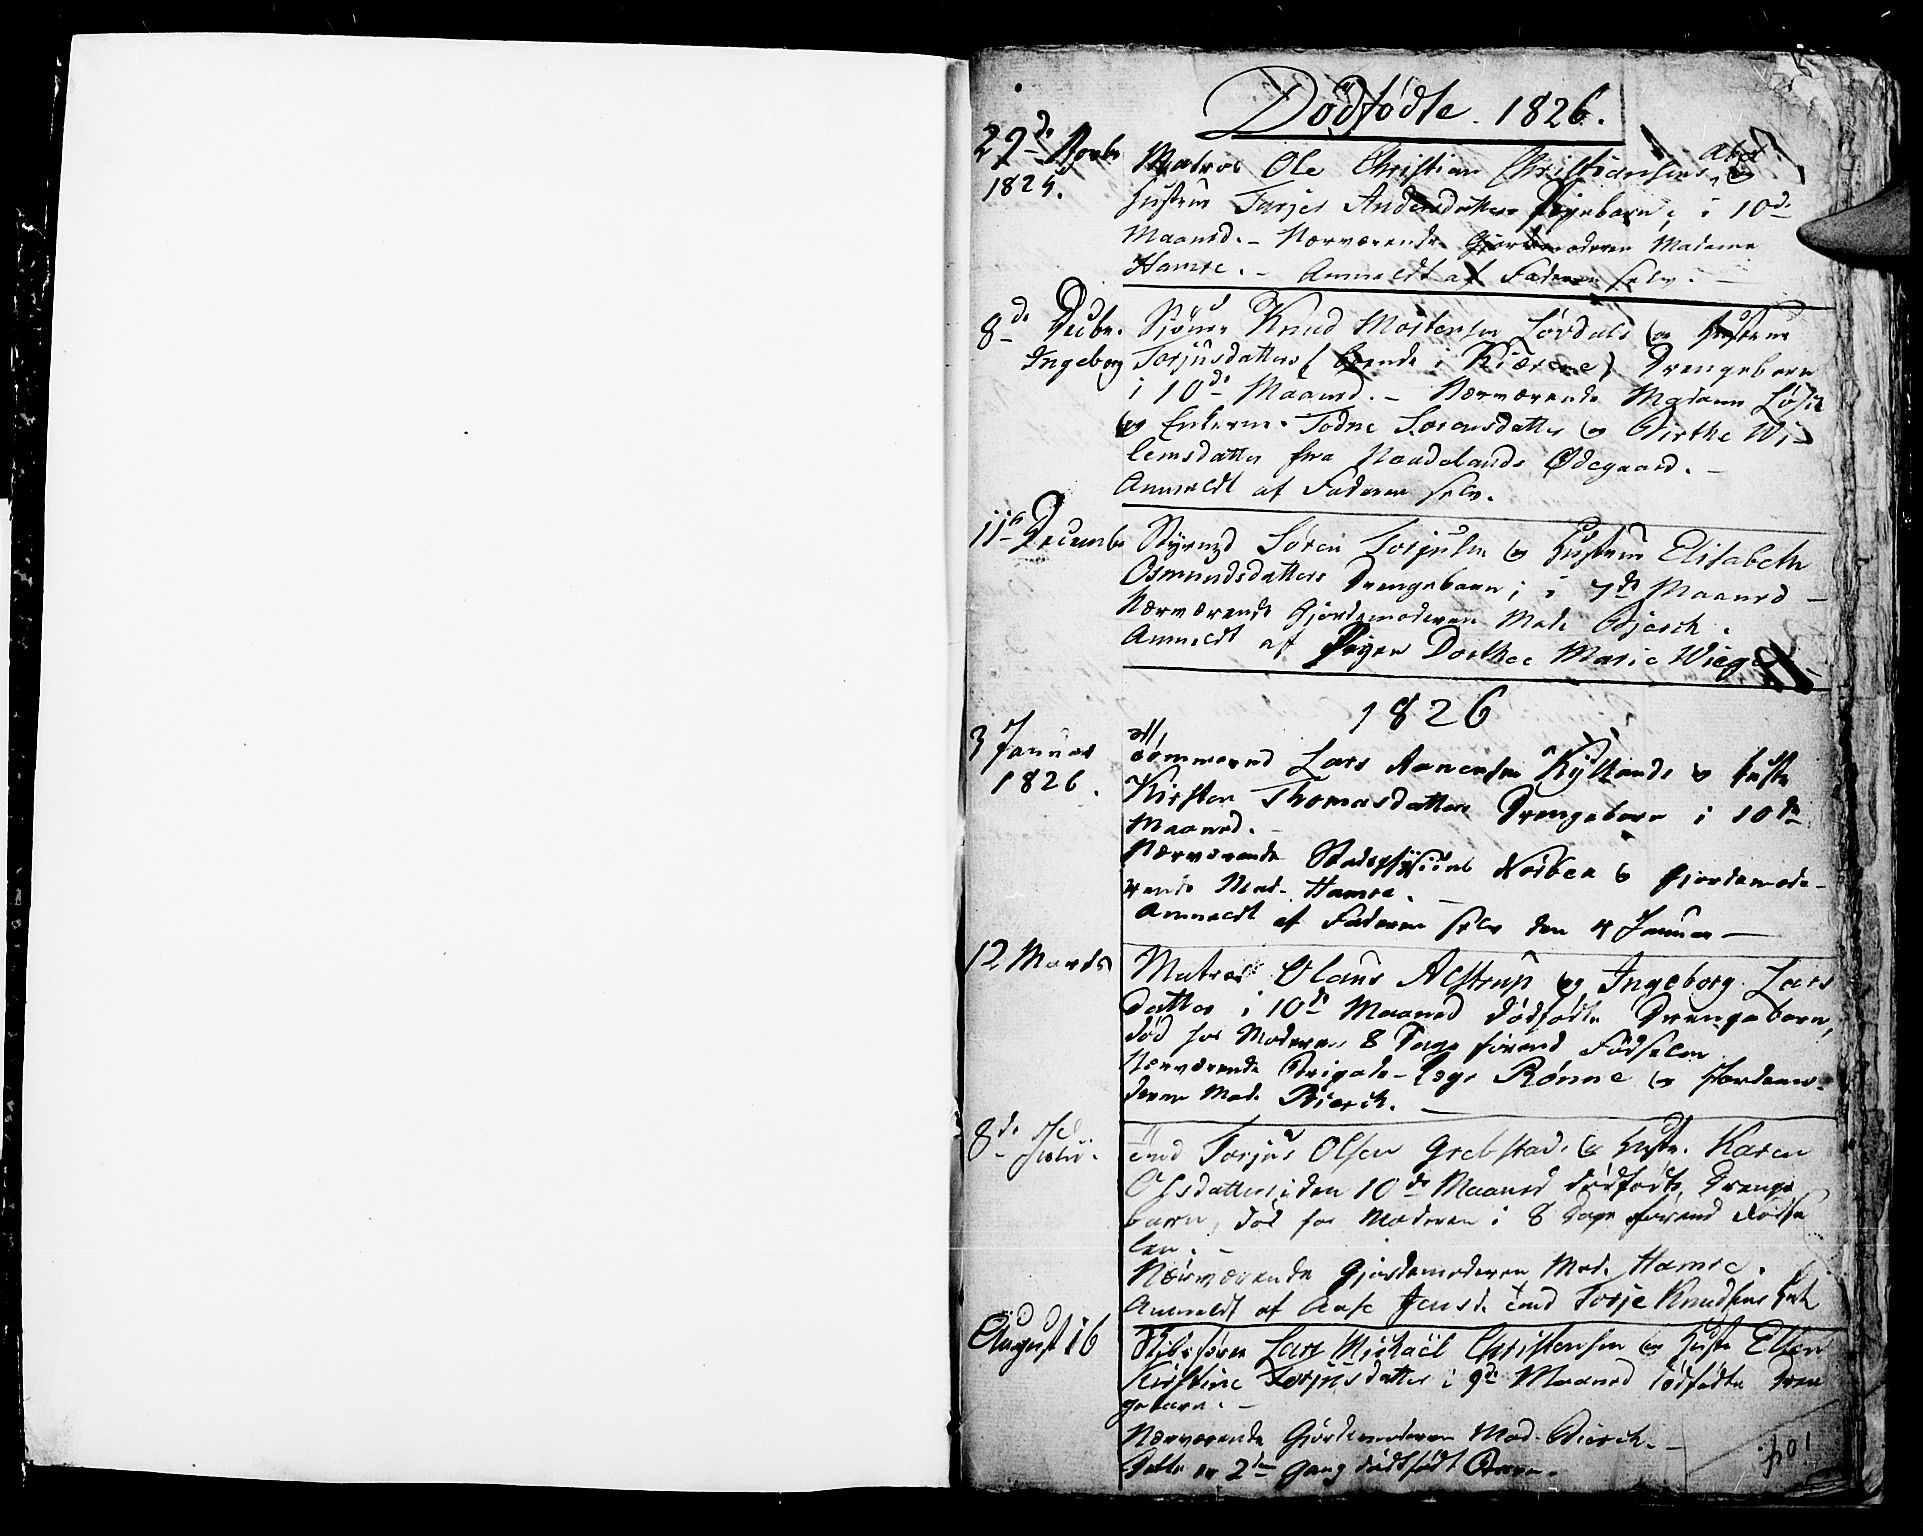 Dødfødte. 1826.
27de Novbr Matros Ole Christian Christiansens og
1825. Hustrue Tarjer Andersdatters Pigebarn, i 10de
Maaned. – Nærværende Gjordemoderen Madame
Hamre. – Anmeldt af Faderen selv. –
8de Decbr. Knud Mortensen Løvdals og Hustrue
Ingeborg Torjusdatters (boende i Kiærene) Drengebarn
i 10de Maaned. – Nærværende Madame
og Enkerne Todne Sørensdatter og Birthe Wi-
lemsdatter fra Ødegaard. –
Anmeldt af Faderen selv.
11te December Styrmd Søren Torjusen og Hustrue Elisabeth
Osmundsdatters Drengebarn; i 7de Maaned –
Nærværende Gjordemoderen Mad. Bjerck.
Anmeldt af Pigen Dorthee Marie Wiege
1826
3 Januar Tømmermd Lars Aanensen og Hustr
1826. Kirsten Thomasdatters Drengebarn i 10de
Maaned. –
Nærværende Stadsphysicus og Gjordemode-
rende Mad. Hamre. –
Anmeldt af Faderen selv den 4 Januar –
12 Marts Matros Olaus Alstrup og Ingeborg Lars
datter i 10de Maaned dødfødte Drengebarn,
død hos Moderen 8 Dage førend Fødselen
Nærværende Brigade-Læge Rønne og Jordemo-
deren Mad. Bierck. –
8de Torjus Olsen Grebstad og Hustr. Karen
Olsdatters i den 10de Maaned dødfødte Drenge
barn, død hos Moderen i 8 Dage førend Fødse
len. –
Nærværende Gjordemoderen Mad. Hamre.
Anmeldt af Aase Jensd. Torje Knudsens
August 16 Skibsfører Lars Michaël Christensen og Hustr Ellen
Kirstine Torjusdatter i 9de Maaned dødfødte Dren
gebarn. –
Nærværende Gjordemoderen Mad. Bierck. –
2den Gang dødfødt Barn.